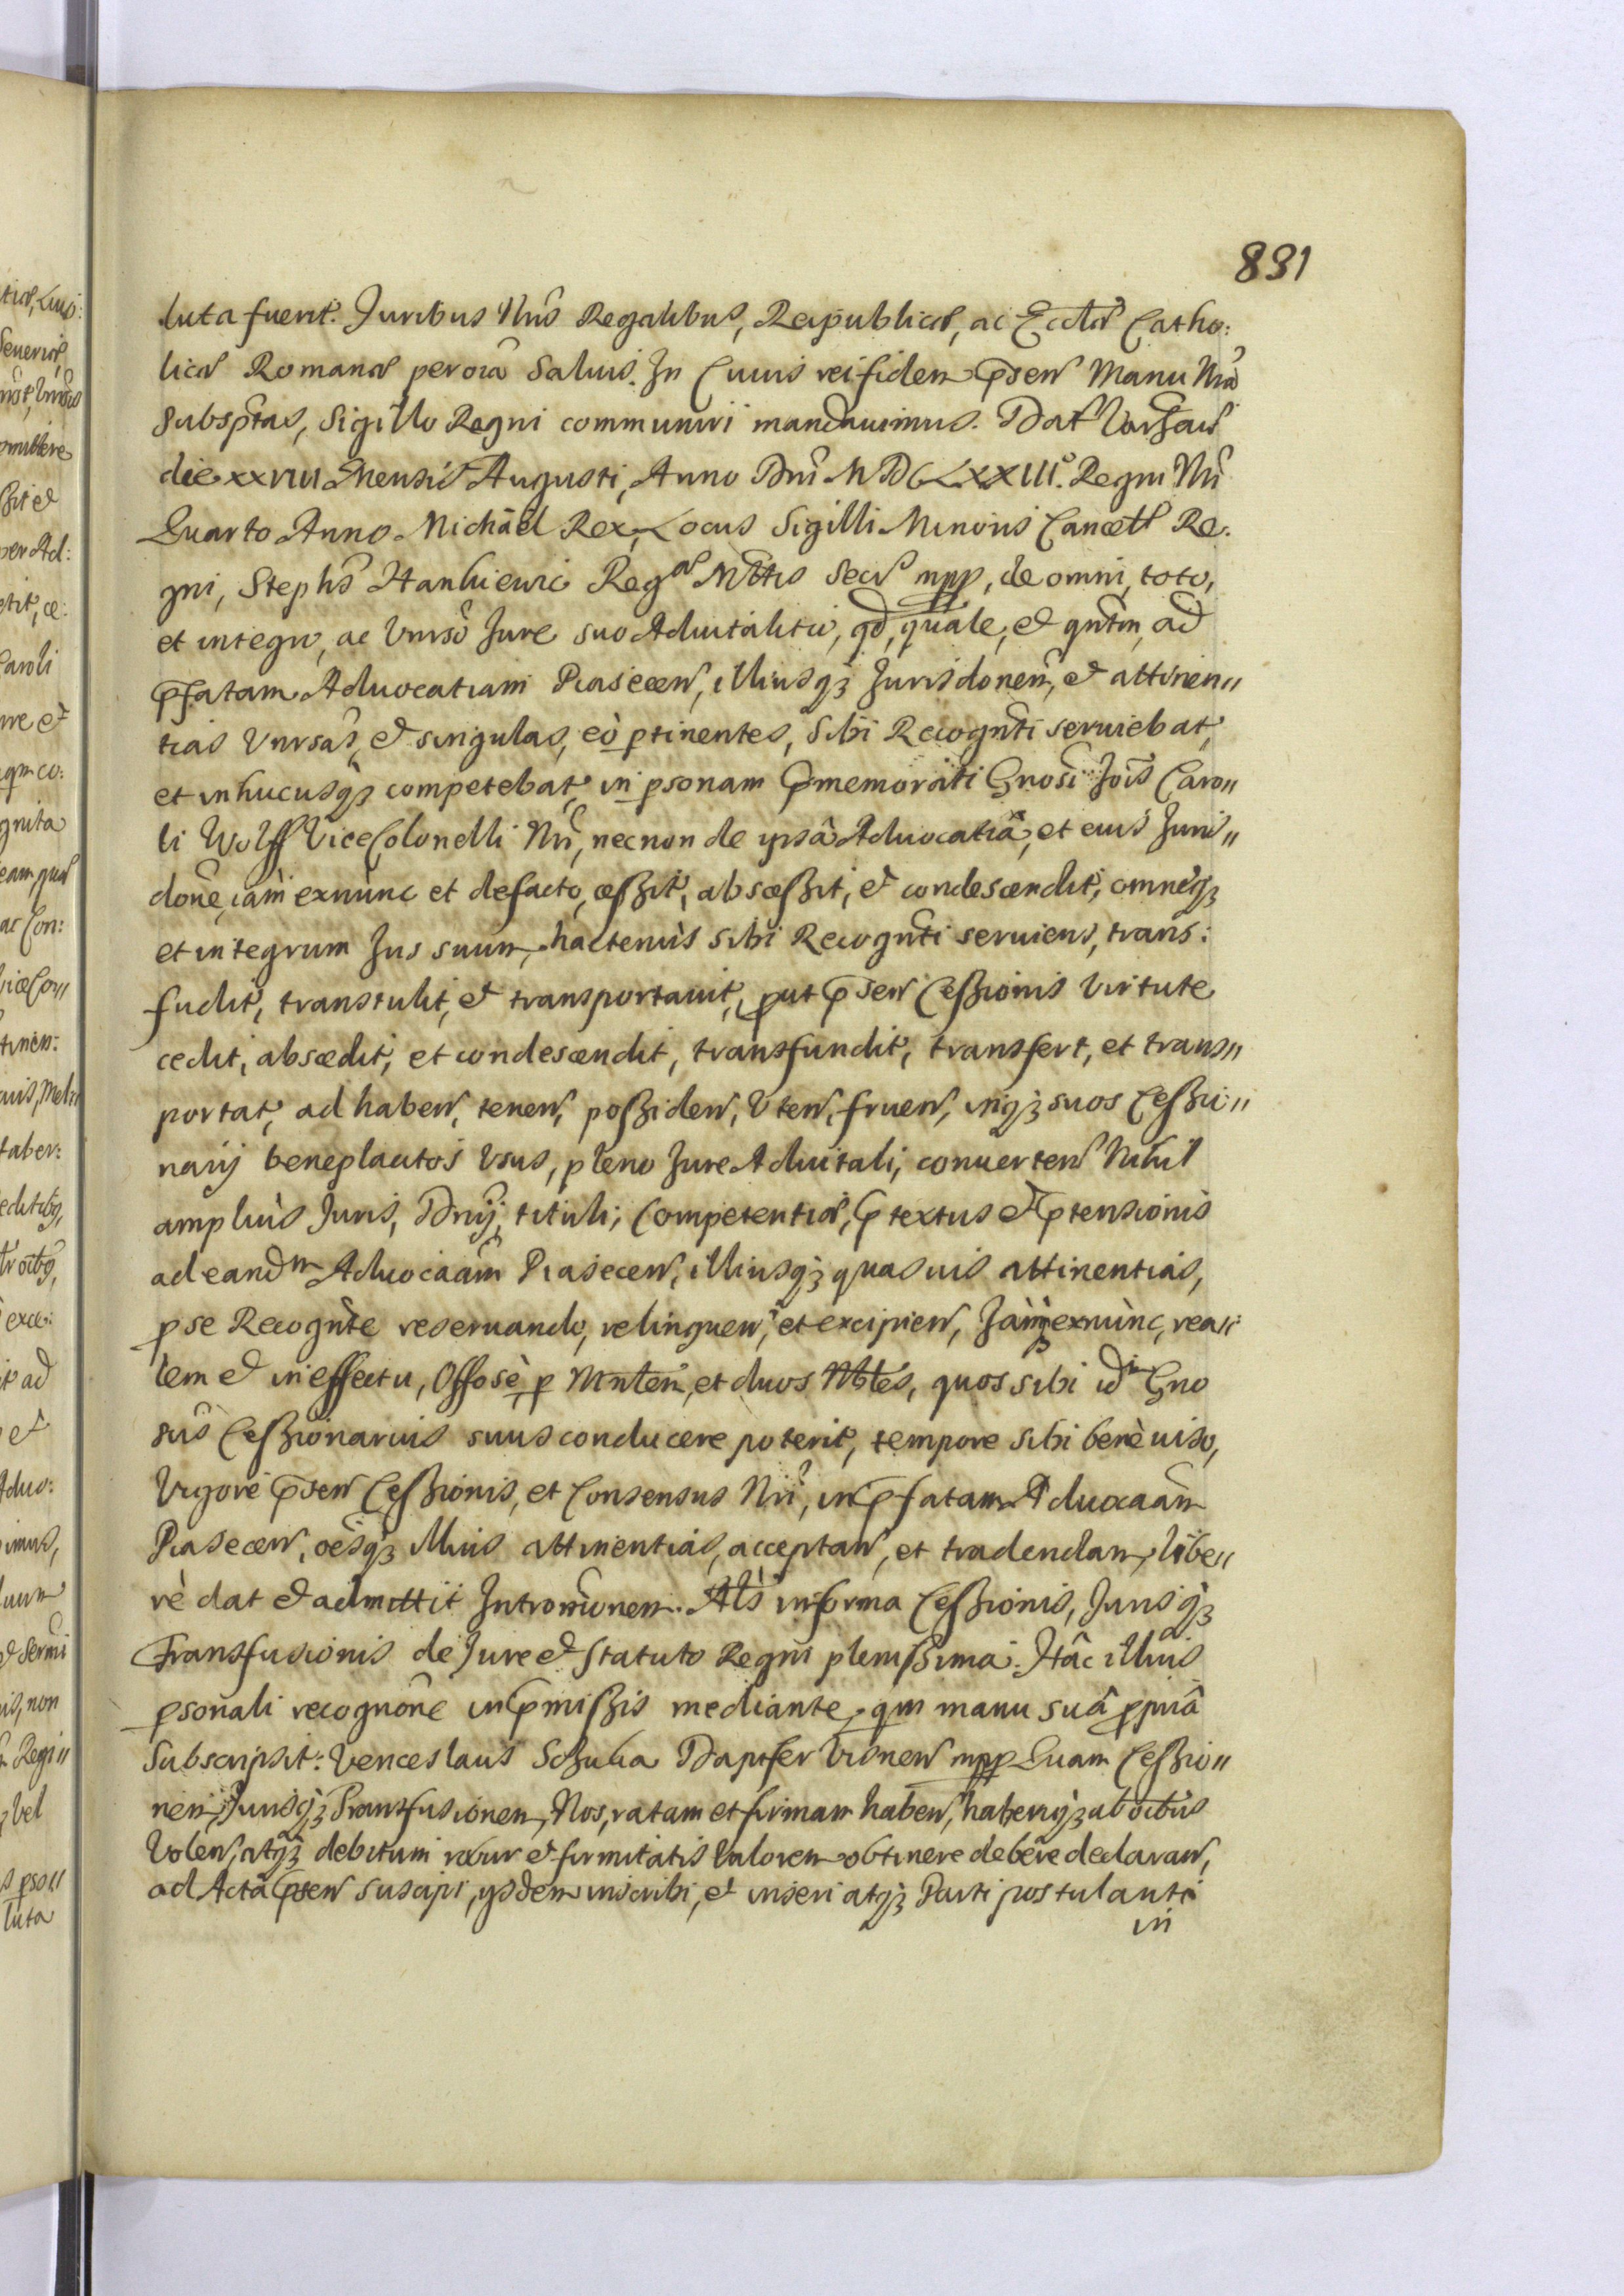 831
luta fuerit. Juribus Nris Regalibus, Reipublicæ, ac Eccliæ Catho:
licæ Romanæ per oia Saluis. In Cuius rei fidem pṡen Manu Nra
Subsptas, Sigillo Regni communiri mandauimus. Dat Varsauiæ
die xxviii Mensis Augusti, Anno Dni MDCLXXIII.° Regni Nri
Quarto Anno. Michäel Rex, Locus Sigilli Minoris Cancell Re.
gni, Stephs Hankiewic Regæ Mttis Secr mpp, de omni, toto,
et integro, ac Vnirso Jure suo Aduitalitio, qd, quale, et quntm, ad
pfatam Aduocatiam Piasecen, illiusq₃ Jurisdonem, et attinen„
tias Vnirsas, et singulas, eò ptinentes, Sibi Recognti seruiebat,
et inhucusq₃ competebat, in psonam pmemorati Gnosi Jois Caro„
li Wolff ViceColonelli Nri, necnon de ipsâ Aduocatiâ, et eius Juris„
done, iàm exnùnc et defacto, ceßit, absceßit, et condescendit, omneq₃
et integrum Jus suum, hactenùs sibi Recognti seruiens, trans:
fudit, transtulit, et transportauit, put psen Ceßionis Virtute
cedit, abscedit, et condescendit, transfundit, transfert, et trans„
portat, ad haben, tenen, poßiden, Vten, fruen, inq₃ suos Ceßio„
narij beneplacitos Vsus, pleno Jure Aduitali, conuerten Nihil
ampliùs Juris, Dnij, tituli, Competentiæ, ptextus et ptensionis
ad eandm Aduocaam Piasecen, illiusq₃ quasuis attinentias,
p se Recognte reseruando, relinquen, et excipien, Jàm exnùnc, rea„
lem et in effectu, Offosè p Mnrlem, et duos Nbles, quos sibi id Gno
sus Ceßionarius suus conducere poterit, tempore sibi benè uiso,
Vigore psen Ceßionis, et Consensus Nri, in pfatam Aduocaam
Piasecen, oesq₃ illius attinentias, acceptan, et tradendam, libe„
rè dat et admittit Intromionem. Als in forma Ceßionis, Jurisq₃
Transfusionis de Jure et Statuto Regni plenißima. Hâc illius
psonali recognone in pmißis mediante, qm manu suâ ppriâ
Subscripsit: Venceslaus Dapifer Visnen mpp Quam Ceßio„
nem, Jurisq₃ Transfusionem, Nos, ratam et firmam haben, haberiq₃ ab oibus
Volen, atq₃ debitum robur et firmitatis Valorem obtinere debere declaran,
ad Acta psen suscipi, ysdem inscribi, et inseri atq₃ Parti postulanti
in